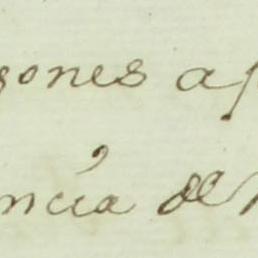 zones a
ncia de